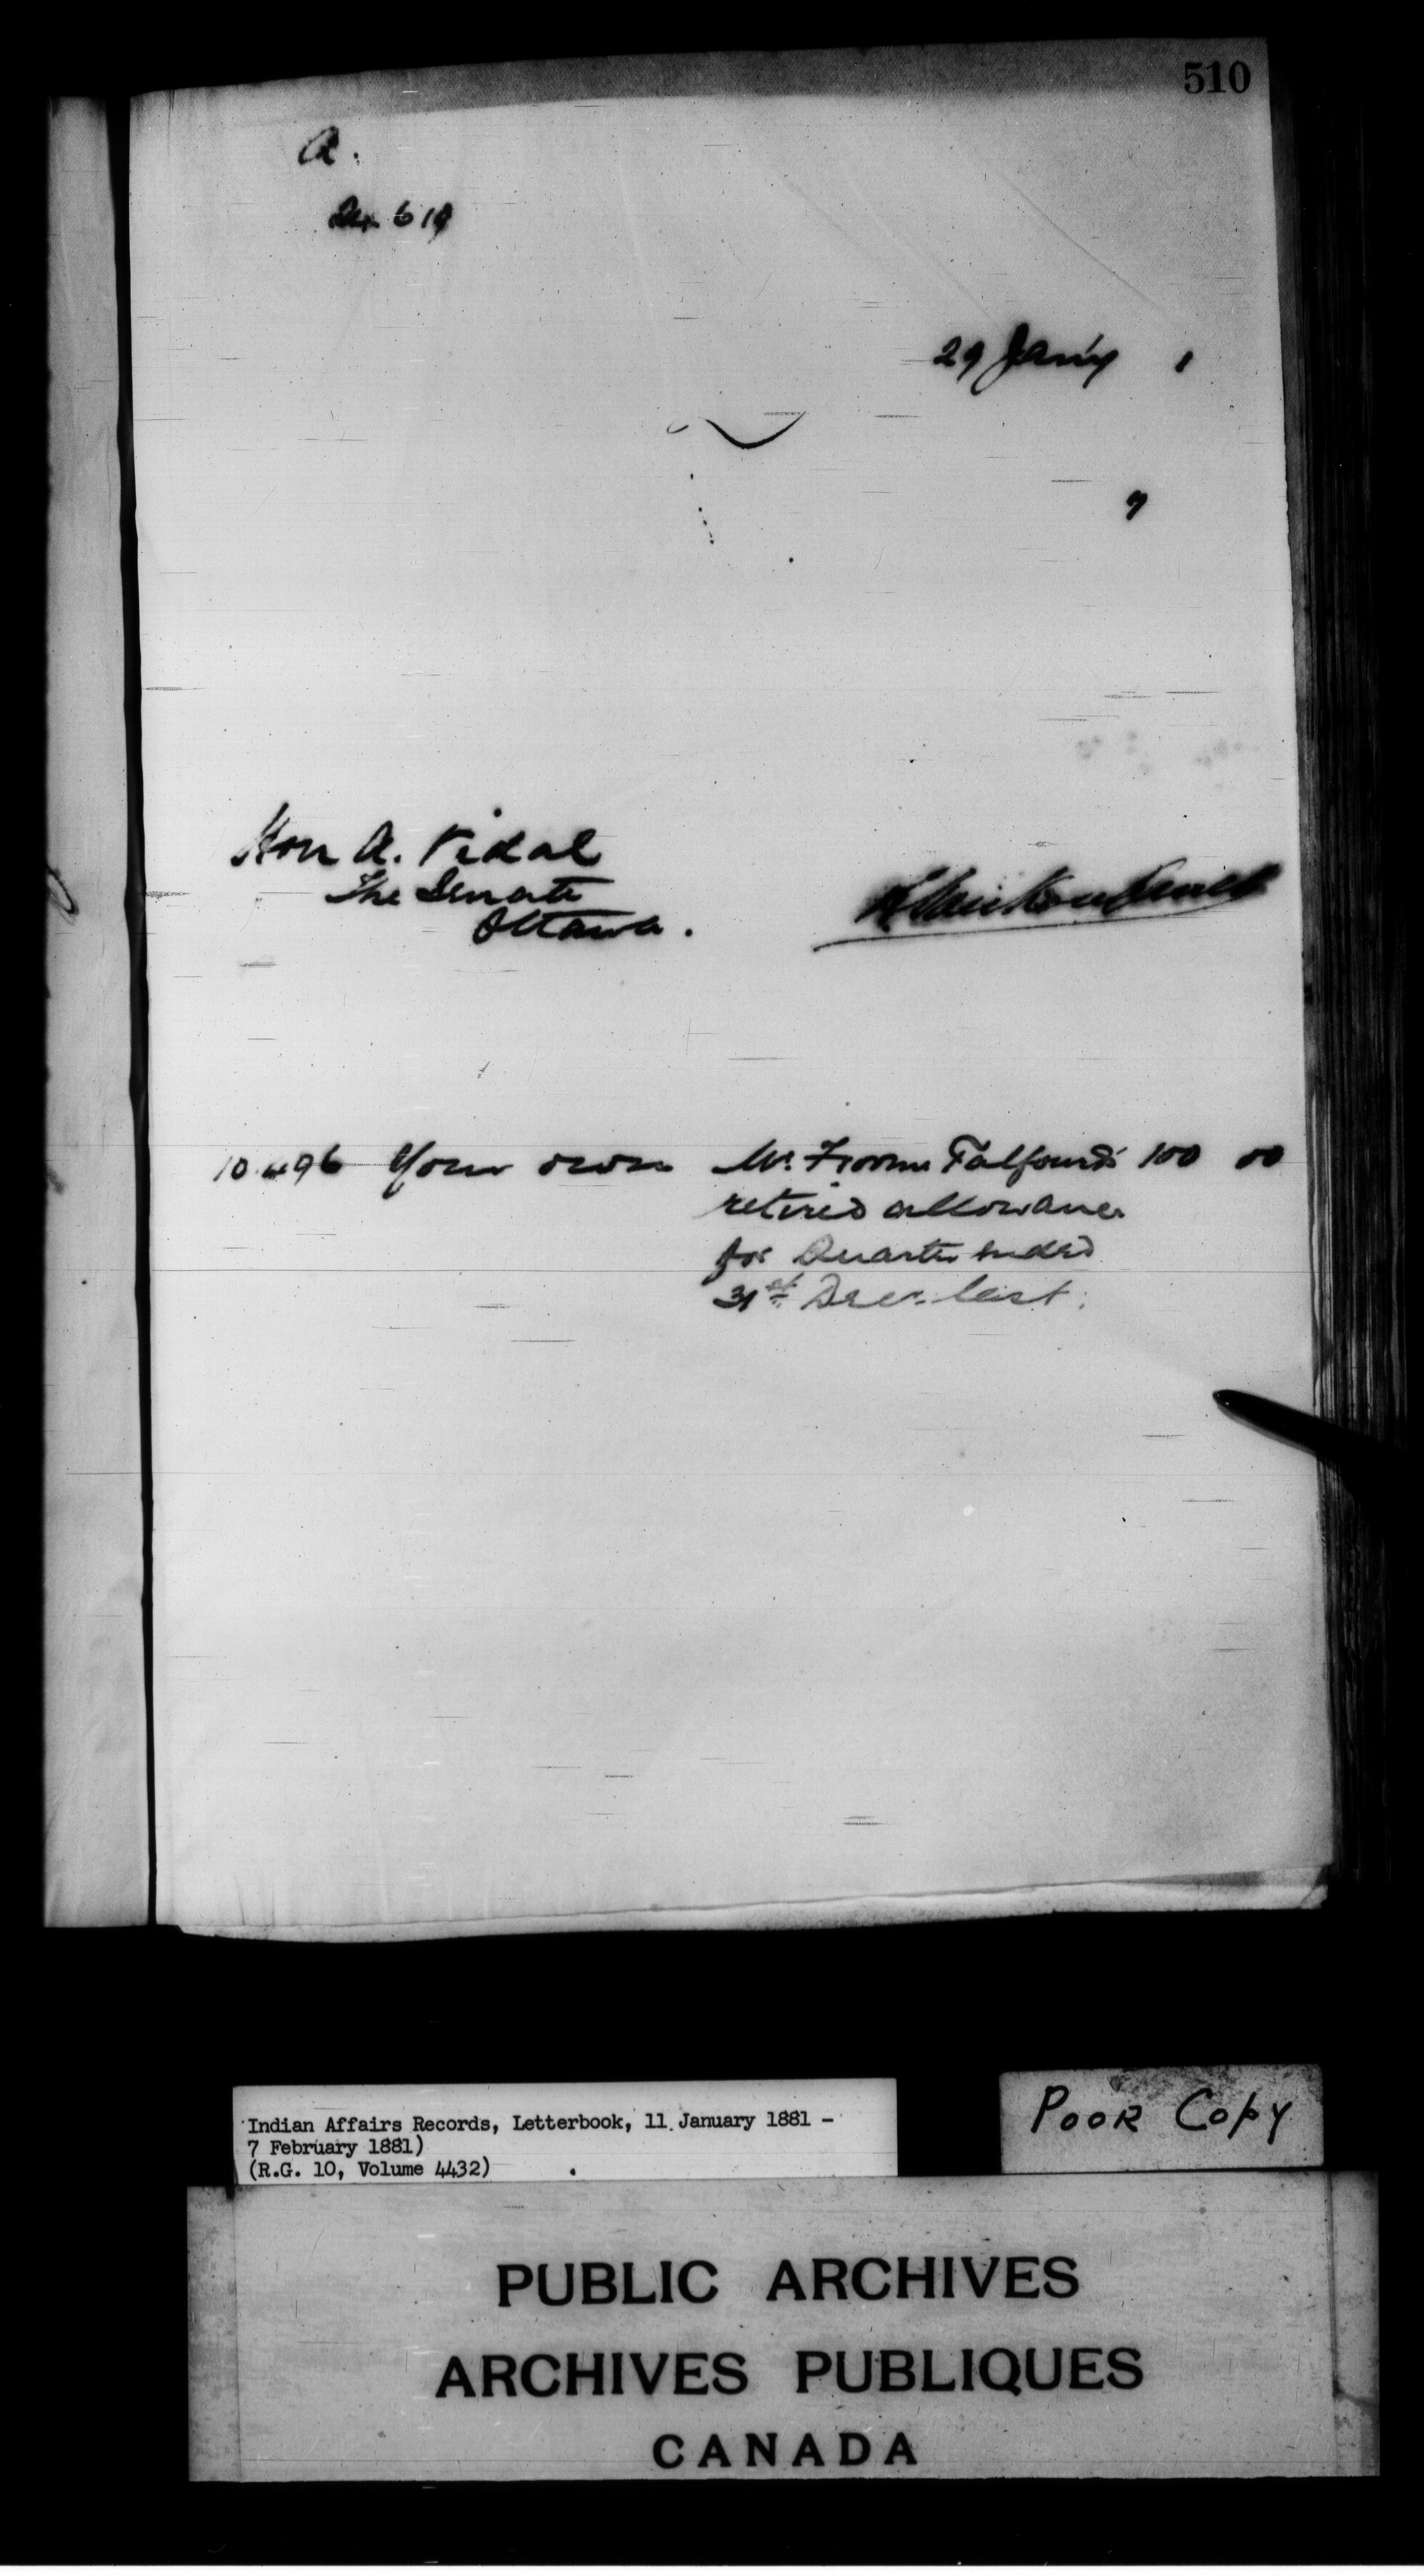 510
A.
619
29 Jan'y 1
7
Hon A. Vidal
The Senate
Ottawa.
10496 Your own Mr. Froome Talfourd's 100 00
retired allowance
for Quarter ended
31st Decr. last.
Indian Affairs Records, Letterbook, 11 January 1881 -
7 February 1881)
(R.G. 10, Volume 4432)
POOR COPY
PUBLIC ARCHIVES
ARCHIVES PUBLIQUES
CANADA